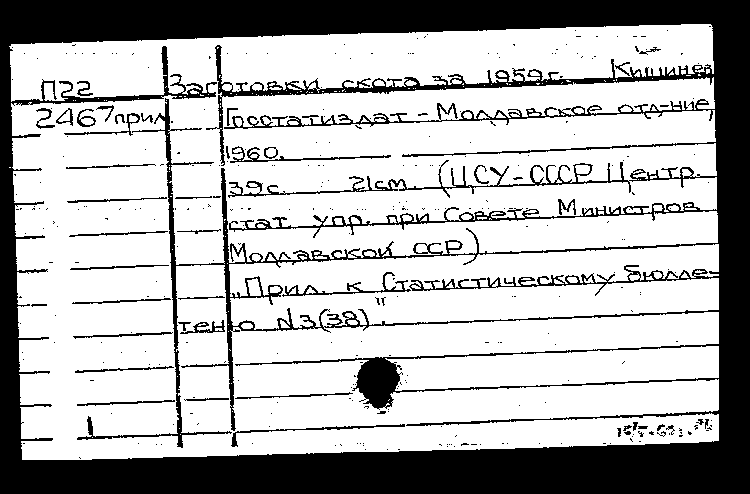 П22 Заготовки скота за 1959г. Кишинев,
2467прил. Госстатиздат - Молдавское отд-ние,
1960.
39с. 21см. (ЦСУ-СССР Центр.
стат. упр. при Совете Министров
Молдавской ССР).
„Прил. к Статистическому бюлле-
теню №3(38)".
1